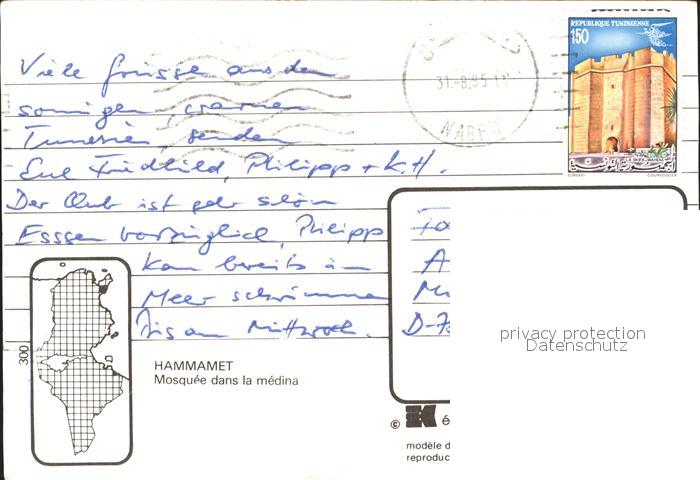 REPUBLIQUE TUNISIENNE
150
31-8.85
NABEUL
LA SKIFA-MAHDIA
COURVOISIER
Viele Grüsse aus dem
sonnigen, warmen
Tunesien, senden
Eure Friedhild, Philipp + K.H.
Der Club ist sehr schön
Esssen vorzüglich, Philipp
kan bereits im
Meer schwimmen
Bis am Mittwoch.
D-7
300
HAMMAMET
Mosquée dans la médina
privacy protection
Datenschutz
© EK é
modèle d
reproduc